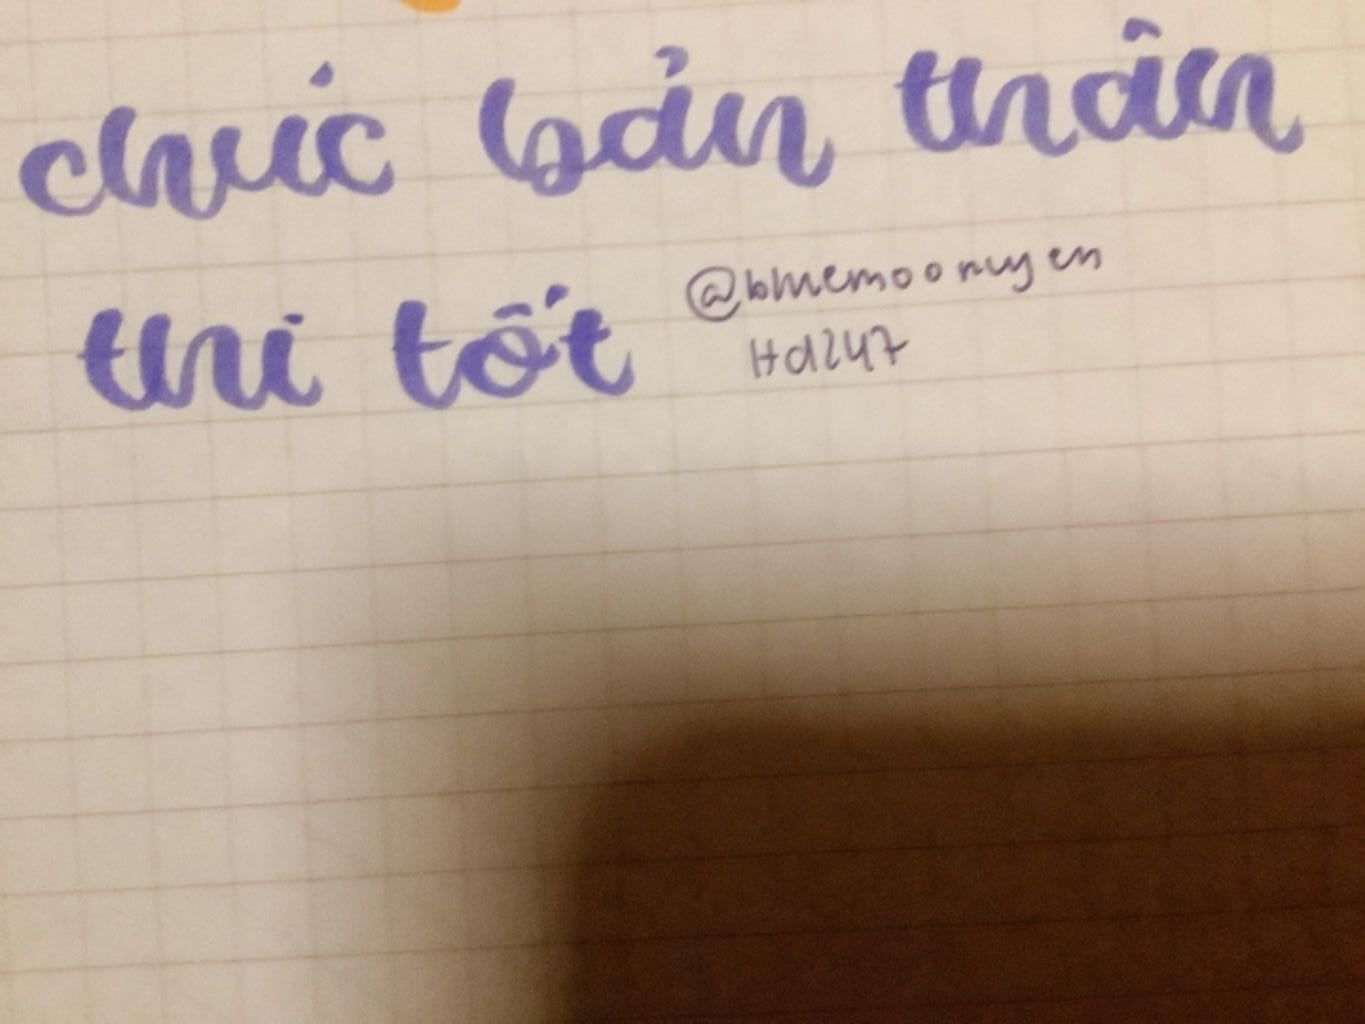 chúc bản thân
thi tốt @bluemoonuyen
Hd247